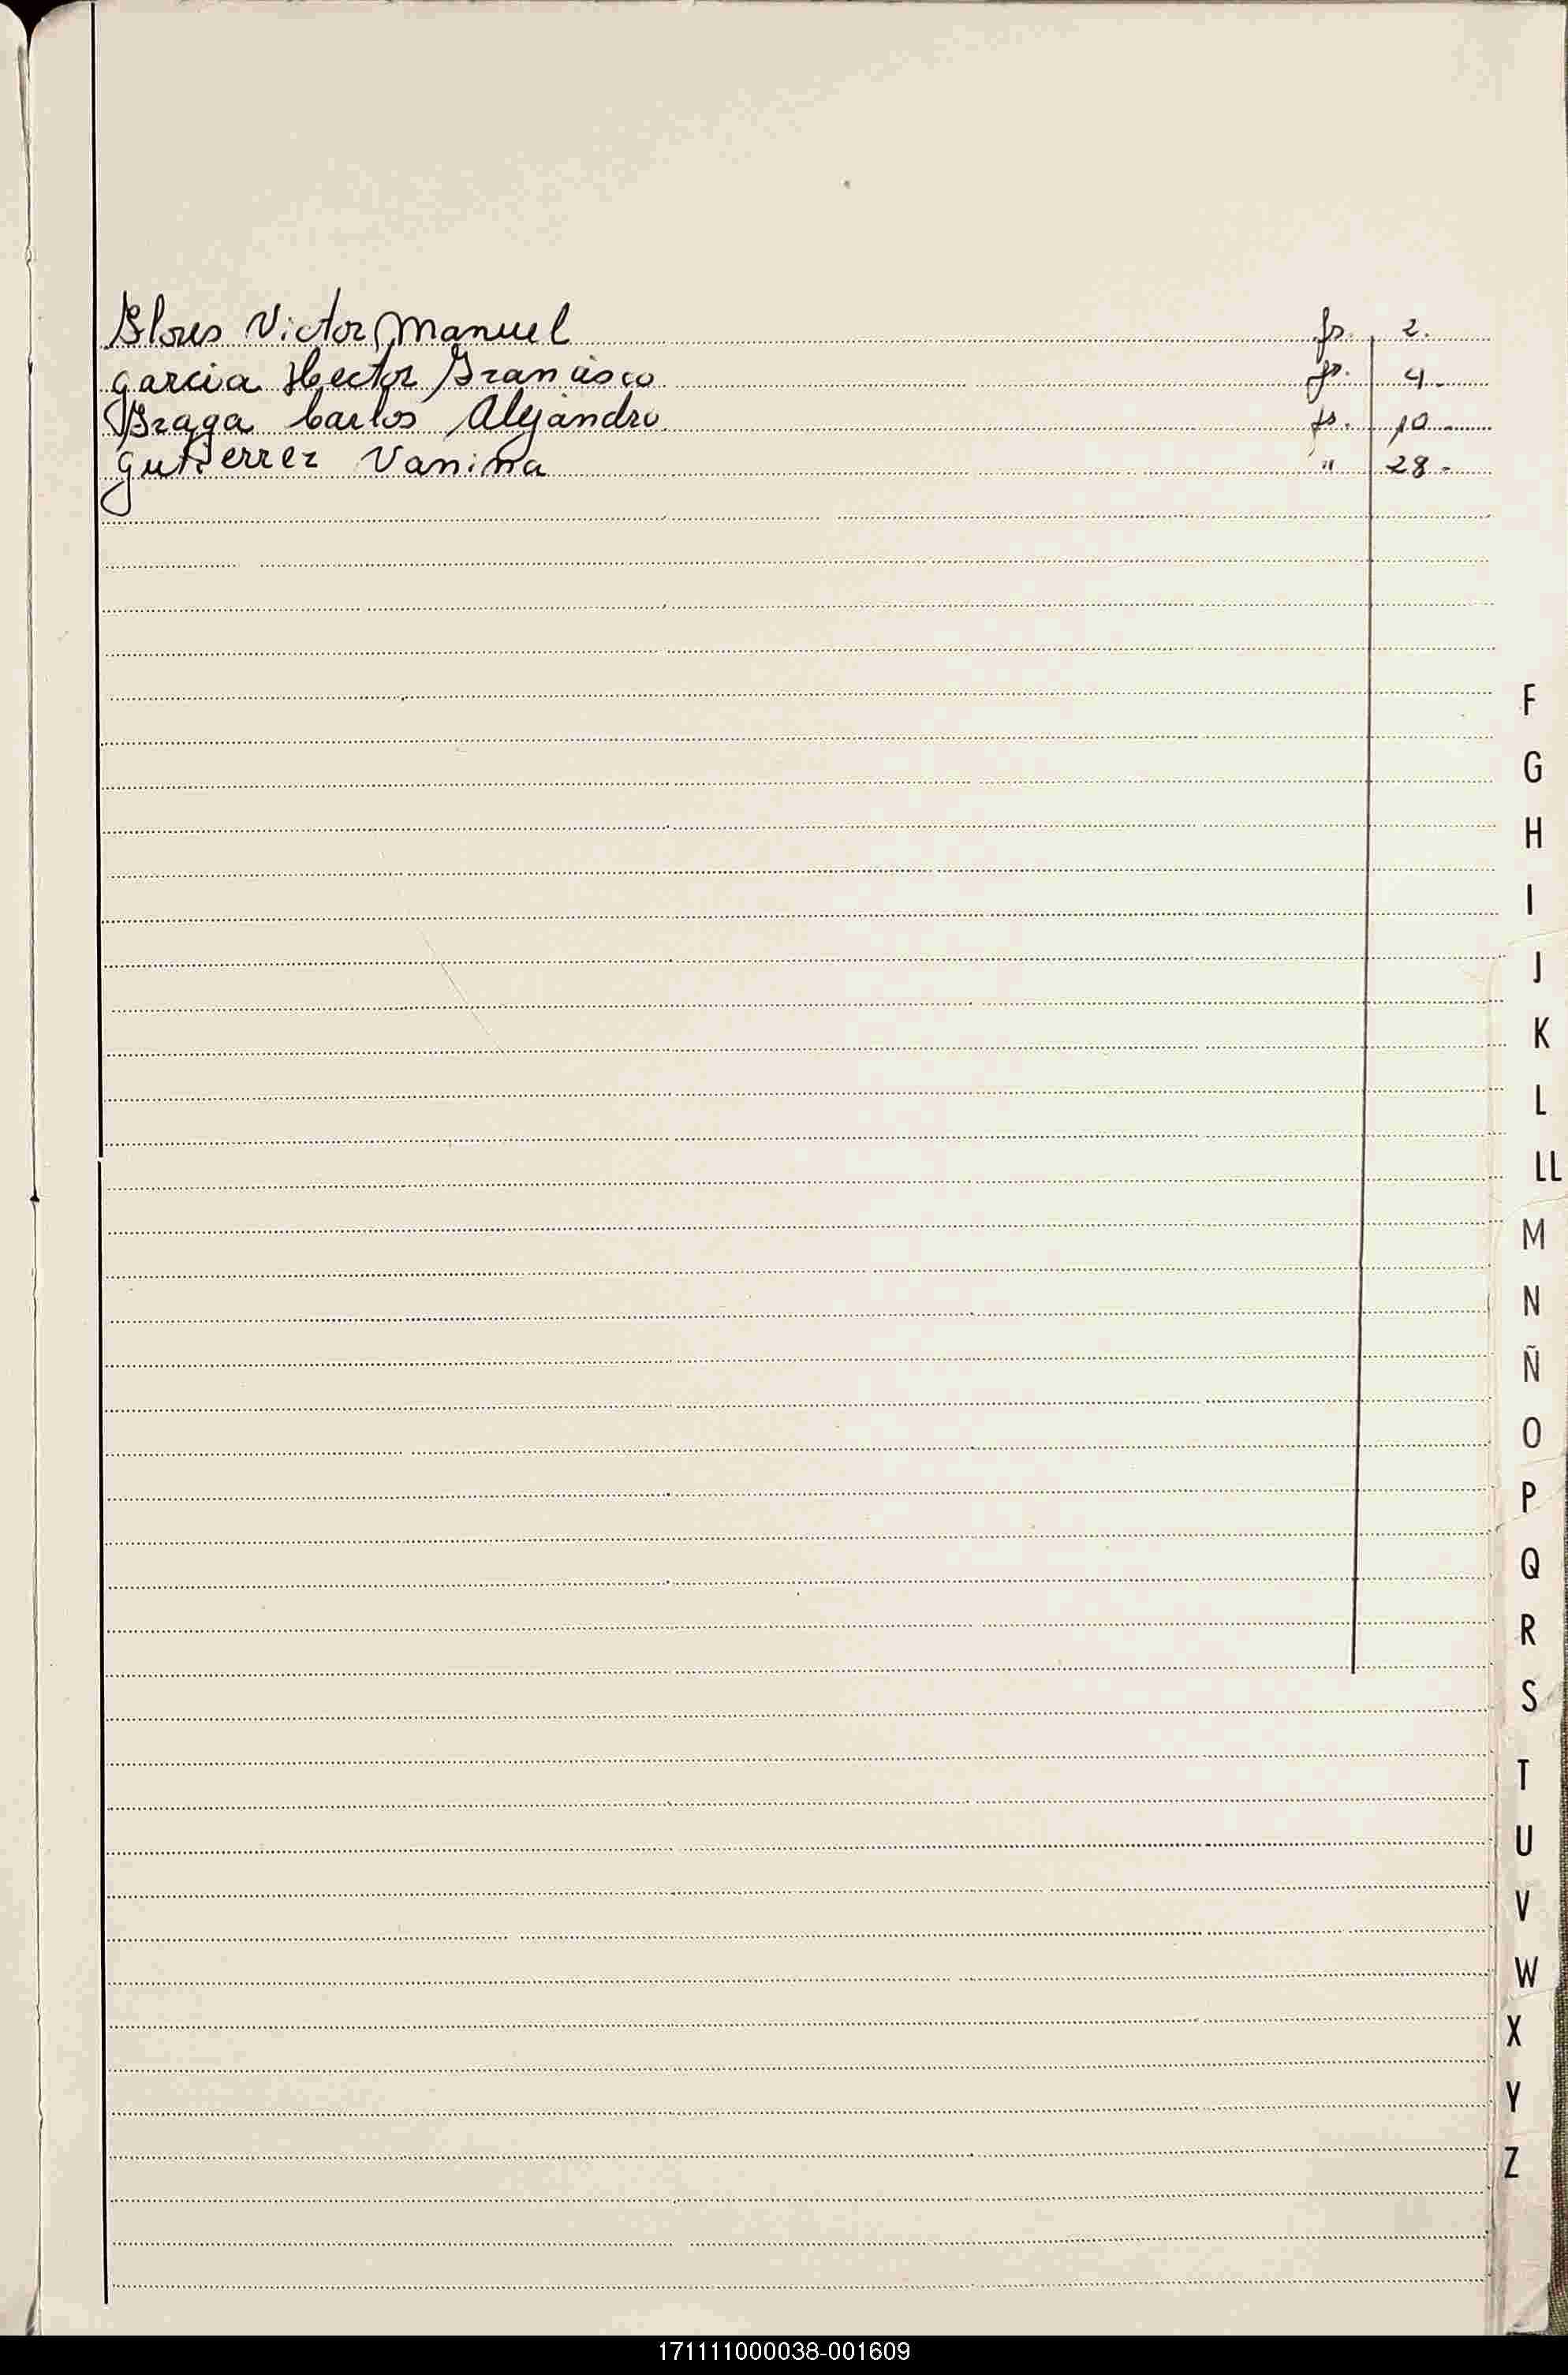 Flores Victor Manuel fs. 2.
Garcia Hector Francisco fs. 4.
Fraga Carlos Alejandro fs. 10
Gutierrez Vanina " 28-
F
G
H
I
J
K
L
LL
M
N
Ñ
O
P
Q
R
S
T
U
V
W
X
Y
Z
171111000038-001609